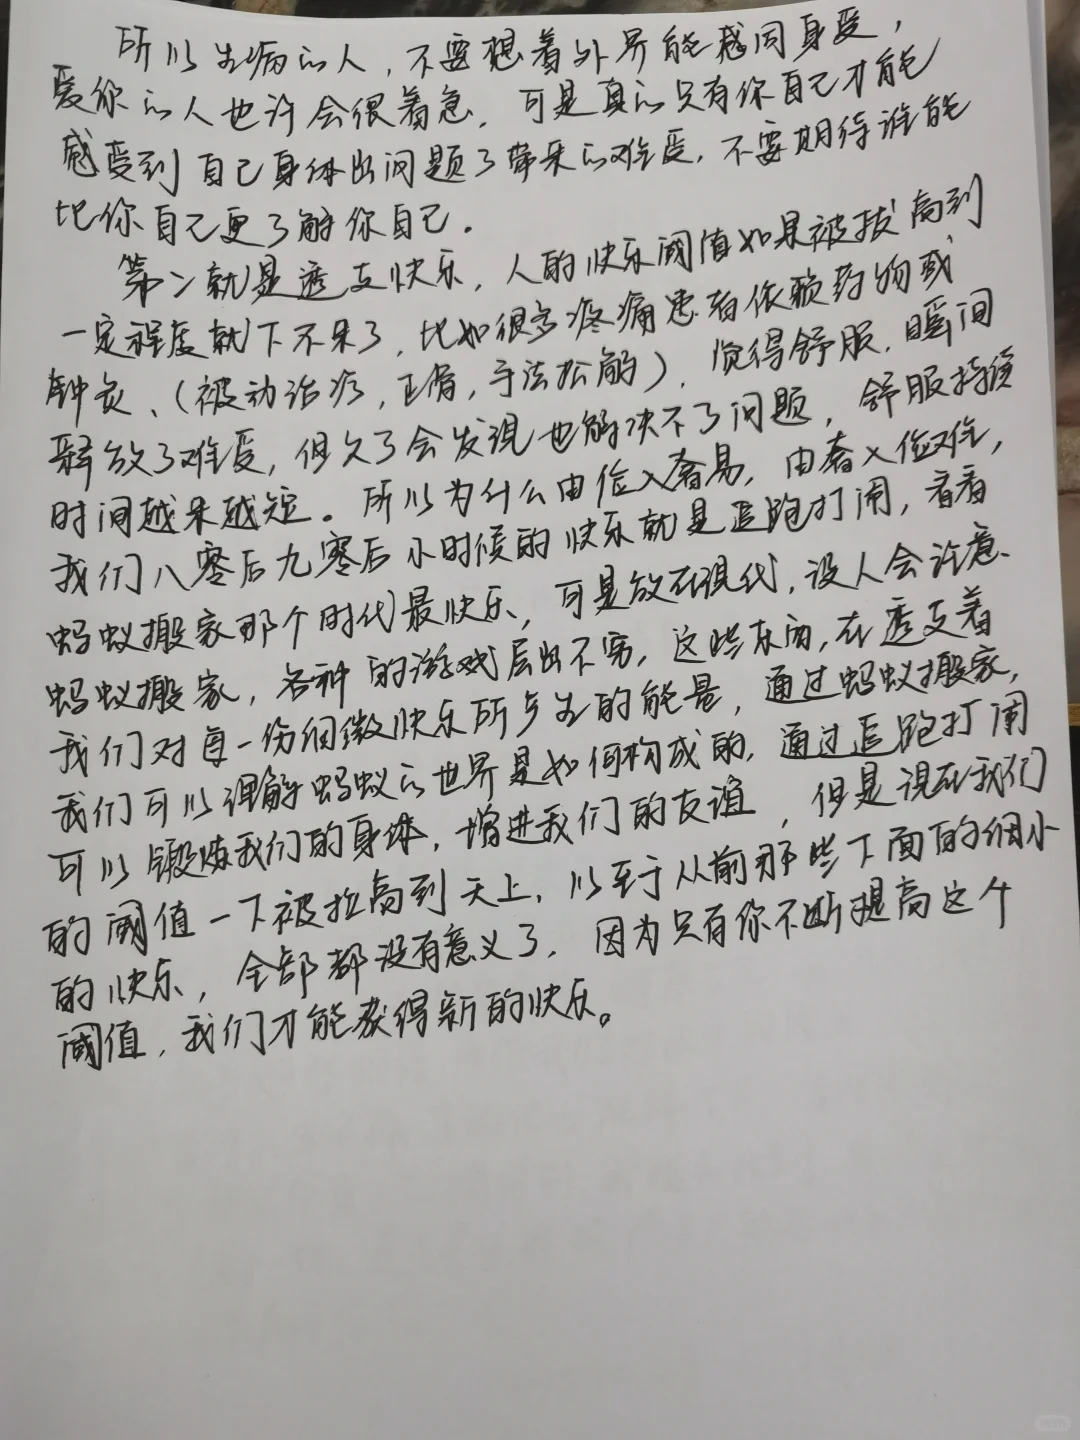 所以生病的人，不要想着外界能感同身受，
爱你的人也许会很着急，可是真的只有你自己才能
感受到自己身体出问题了带来的难受，不要期待谁能
比你自己更了解你自己。
第二就是透支快乐，人的快乐阈值如果被拔高到
一定程度就下不来了，比如很多疼痛患者依赖药物或
针灸、（被动治疗，正骨，手法松解），觉得舒服，瞬间
释放了难受，但久了会发现也解决不了问题，舒服持续
时间越来越短。所以为什么由俭入奢易，由奢入俭难，
我们八零后九零后小时候的快乐就是追跑打闹，看看
蚂蚁搬家那个时代最快乐，可是放在现代，没人会注意
蚂蚁搬家，各种的游戏层出不穷，这些东西，在透支着
我们对每一份细微快乐所产生的能量，通过蚂蚁搬家，
我们可以理解蚂蚁的世界是如何构成的，通过追跑打闹
可以锻炼我们的身体，增进我们的友谊，但是现在我们
的阈值一下被拉高到天上，以至于从前那些下面的细小
的快乐，全部都没有意义了，因为只有你不断提高这个
阈值，我们才能获得新的快乐。